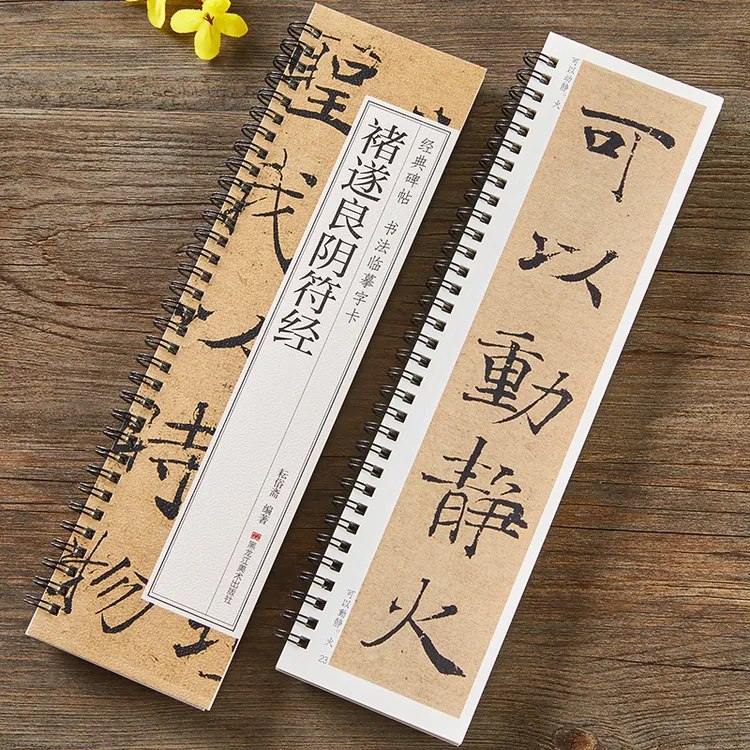 经典碑帖 书法临摹字卡
褚遂良阴符经
耘俗斋 编著
黑龙江美术出版社
聖我以時物
可以动静。火
可以動静火
可以動静。火
23